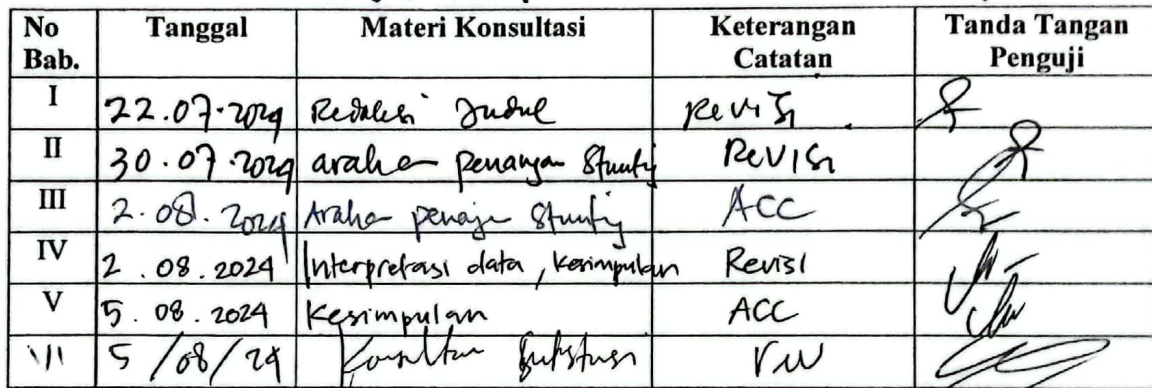 No Bab. Tanggal Materi Konsultasi Keterangan Catatan Tanda Tangan Penguji
I 22.07.2024 Redaksi Judul Revisi
II 30.07.2024 arahan Stunting Revisi
III 2.08.2024 Arahan Stunting ACC
IV 2.08.2024 Interpretasi data, kesimpulan Revisi
V 5.08.2024 Kesimpulan ACC
VI 5/08/24